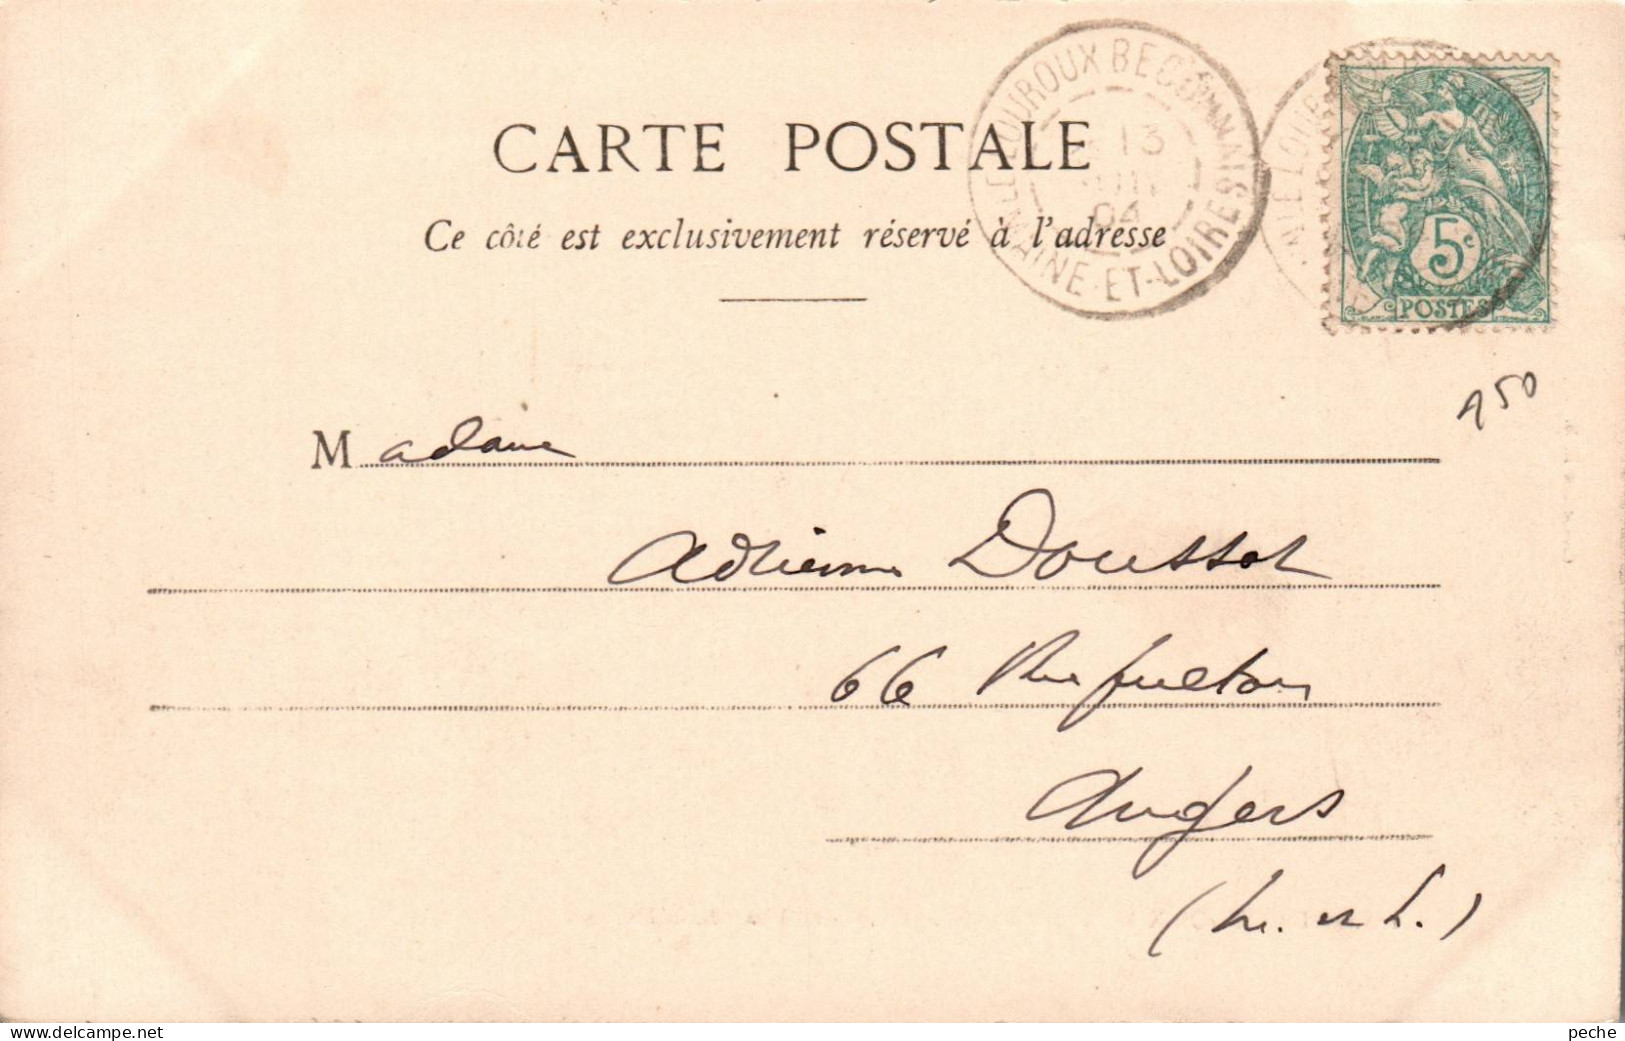 CARTE POSTALE
Ce côté est exclusivement réservé à l'adresse
LE LOUROUX BECONNAIS
13
04
MAINE-ET-LOIRE
LE LOUR
5c
POSTES
150
Madame
Adrienne Doussot
66 Rue fulton
Angers
(M. et L.)
www.delcampe.net
peche